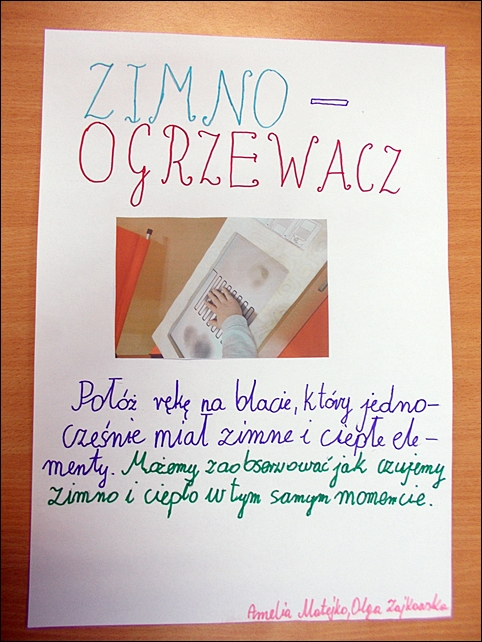 ZIMNO –
OGRZEWACZ
Połóż rękę na blacie, który jedno-
cześnie miał zimne i ciepłe ele-
menty. Możemy zaobserwować jak czujemy
zimno i ciepło w tym samym momencie.
Amelia Matejko, Olga Zajkowska